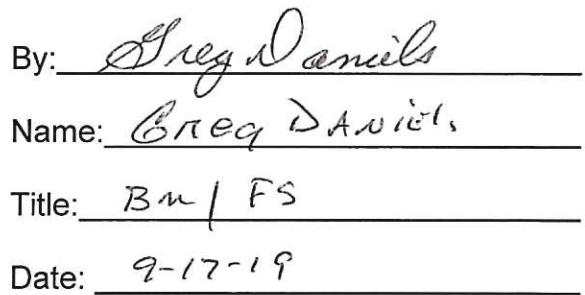 By: Greg Daniels
Name: Greg Daniels
Title: Bm/FS
Date: 9-17-19